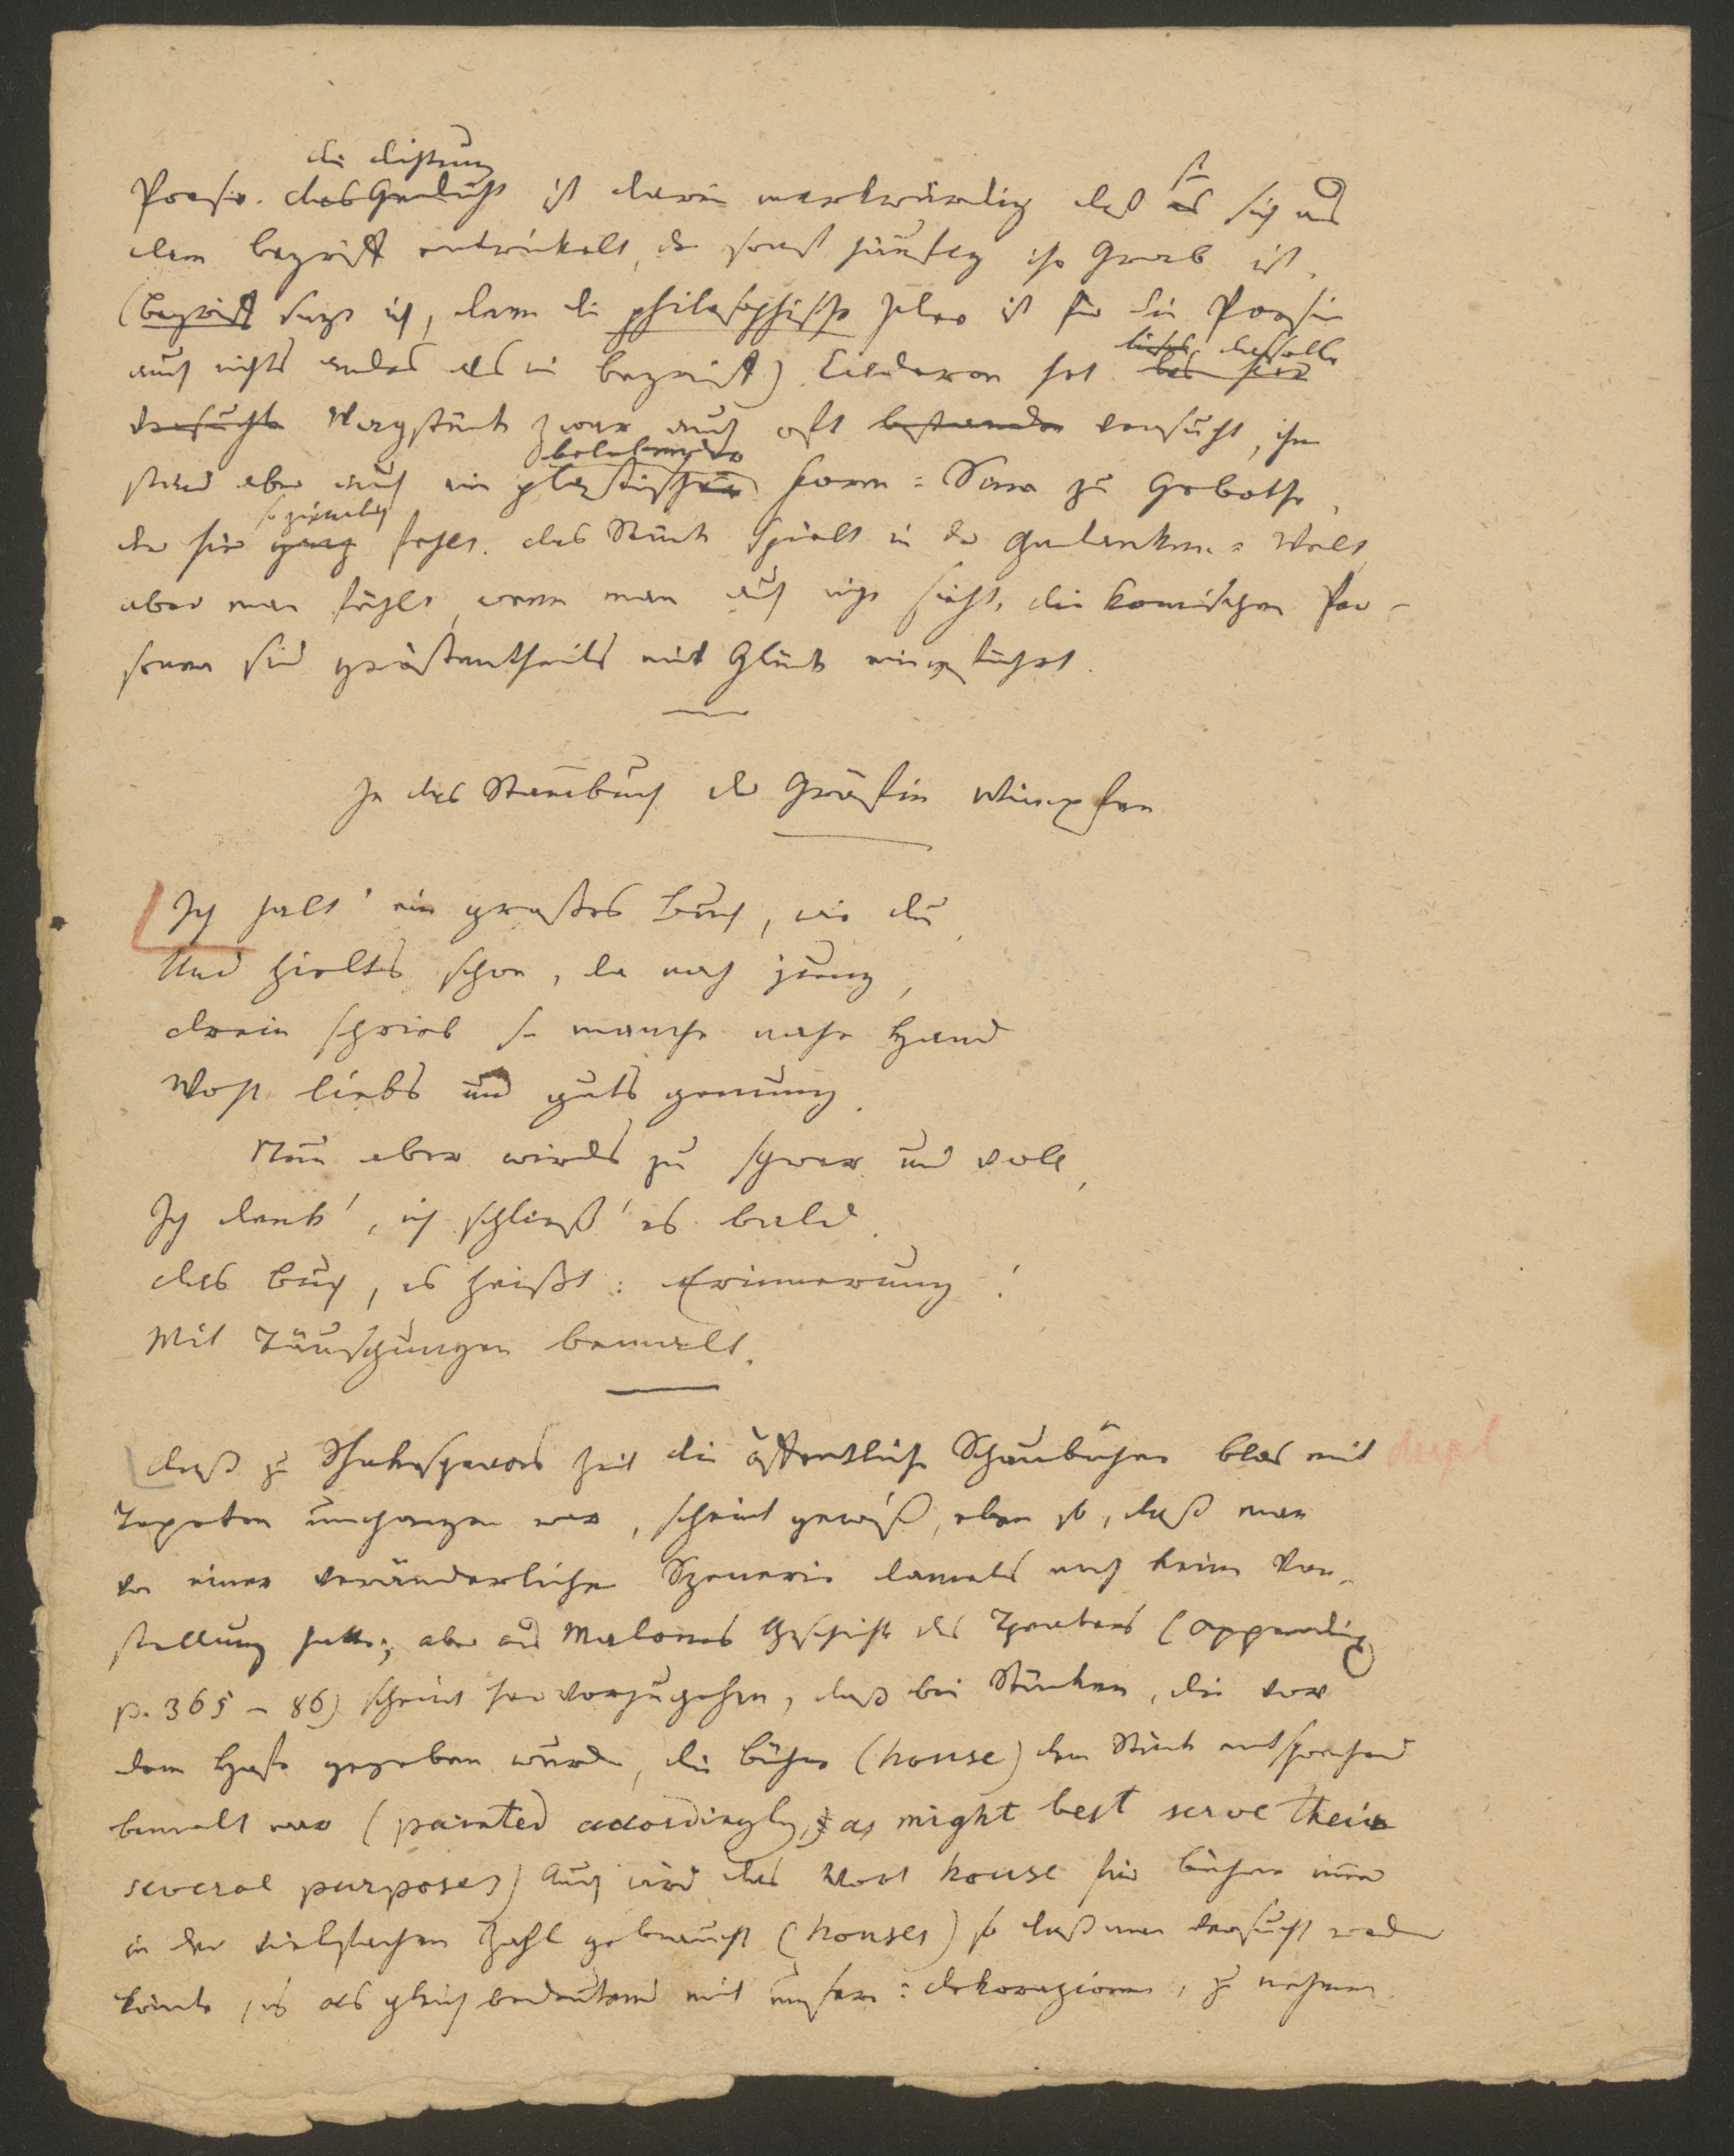 die Dichtung
Poesie. das Gedicht ist darin merkwürdig daß es sie sich aus
dem Begriff entwickelt, der sonst häufig ihr Grab ist.
(Begriff sage ich, denn die philosophische Idee ist für die Poesie
auch nichts anders als ein Begriff). Calderon hat dasselbe
versucht Wagstück zwar auch oft bestanden versucht, ihm
belebender
stand aber auch ein plastischer Form = Sinn zu Gebothe,
so ziemlich
der hier ganz fehlt. das Stück spielt in der Gedanken = Welt,
aber man fühlt, wenn man auch nicht sieht. die komischen Per-
sonen sind größtentheils mit Glück eingeführt.
In das Stammbuch der Gräfin Wimpfen
Ich halt' ein großes Buch, wie du,
Und hielts schon, da noch jung,
drein schrieb so manche nahe Hand
Wohl liebs und guts genung.
Nun aber wirds zu schwer und voll,
Ich denk', ich schließ' es bald.
das Buch, es heißt: Erinnerung!
Mit Täuschungen bemalt.
daß zu Shakespeares Zeit die öffentliche Schaubühne blos mit
Tapeten umhangen war, scheint gewiß, eben so, daß man
von einer veränderlichen Szenerie damals noch keine Vor-
stellung hatte; aber aus Malones Geschichte des Theaters (appendix
p. 365 – 86) scheint hervorzugehen, daß bei Stücken, die vor
dem Hofe gegeben wurden, die Bühne (house) dem Stück entsprechend
bemalt war (painted accordingly, as might best serve their
several purposes) Auch wird das Wort house für Bühne immer
in der vielfachen Zahl gebraucht (houses) so daß man versucht werden
könnte, es als gleichbedeutend mit unserm: Dekorazionen, zu nehmen.